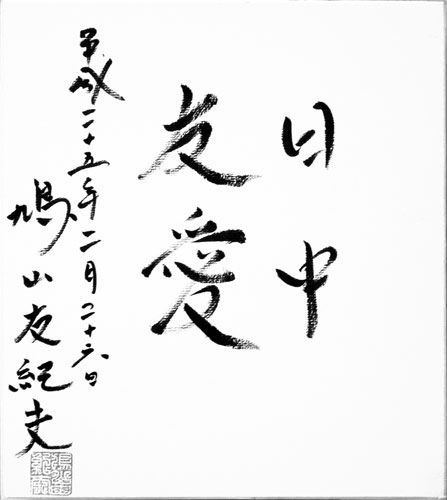 日中
友愛
平成二十五年二月二十六日
鳩山友紀夫